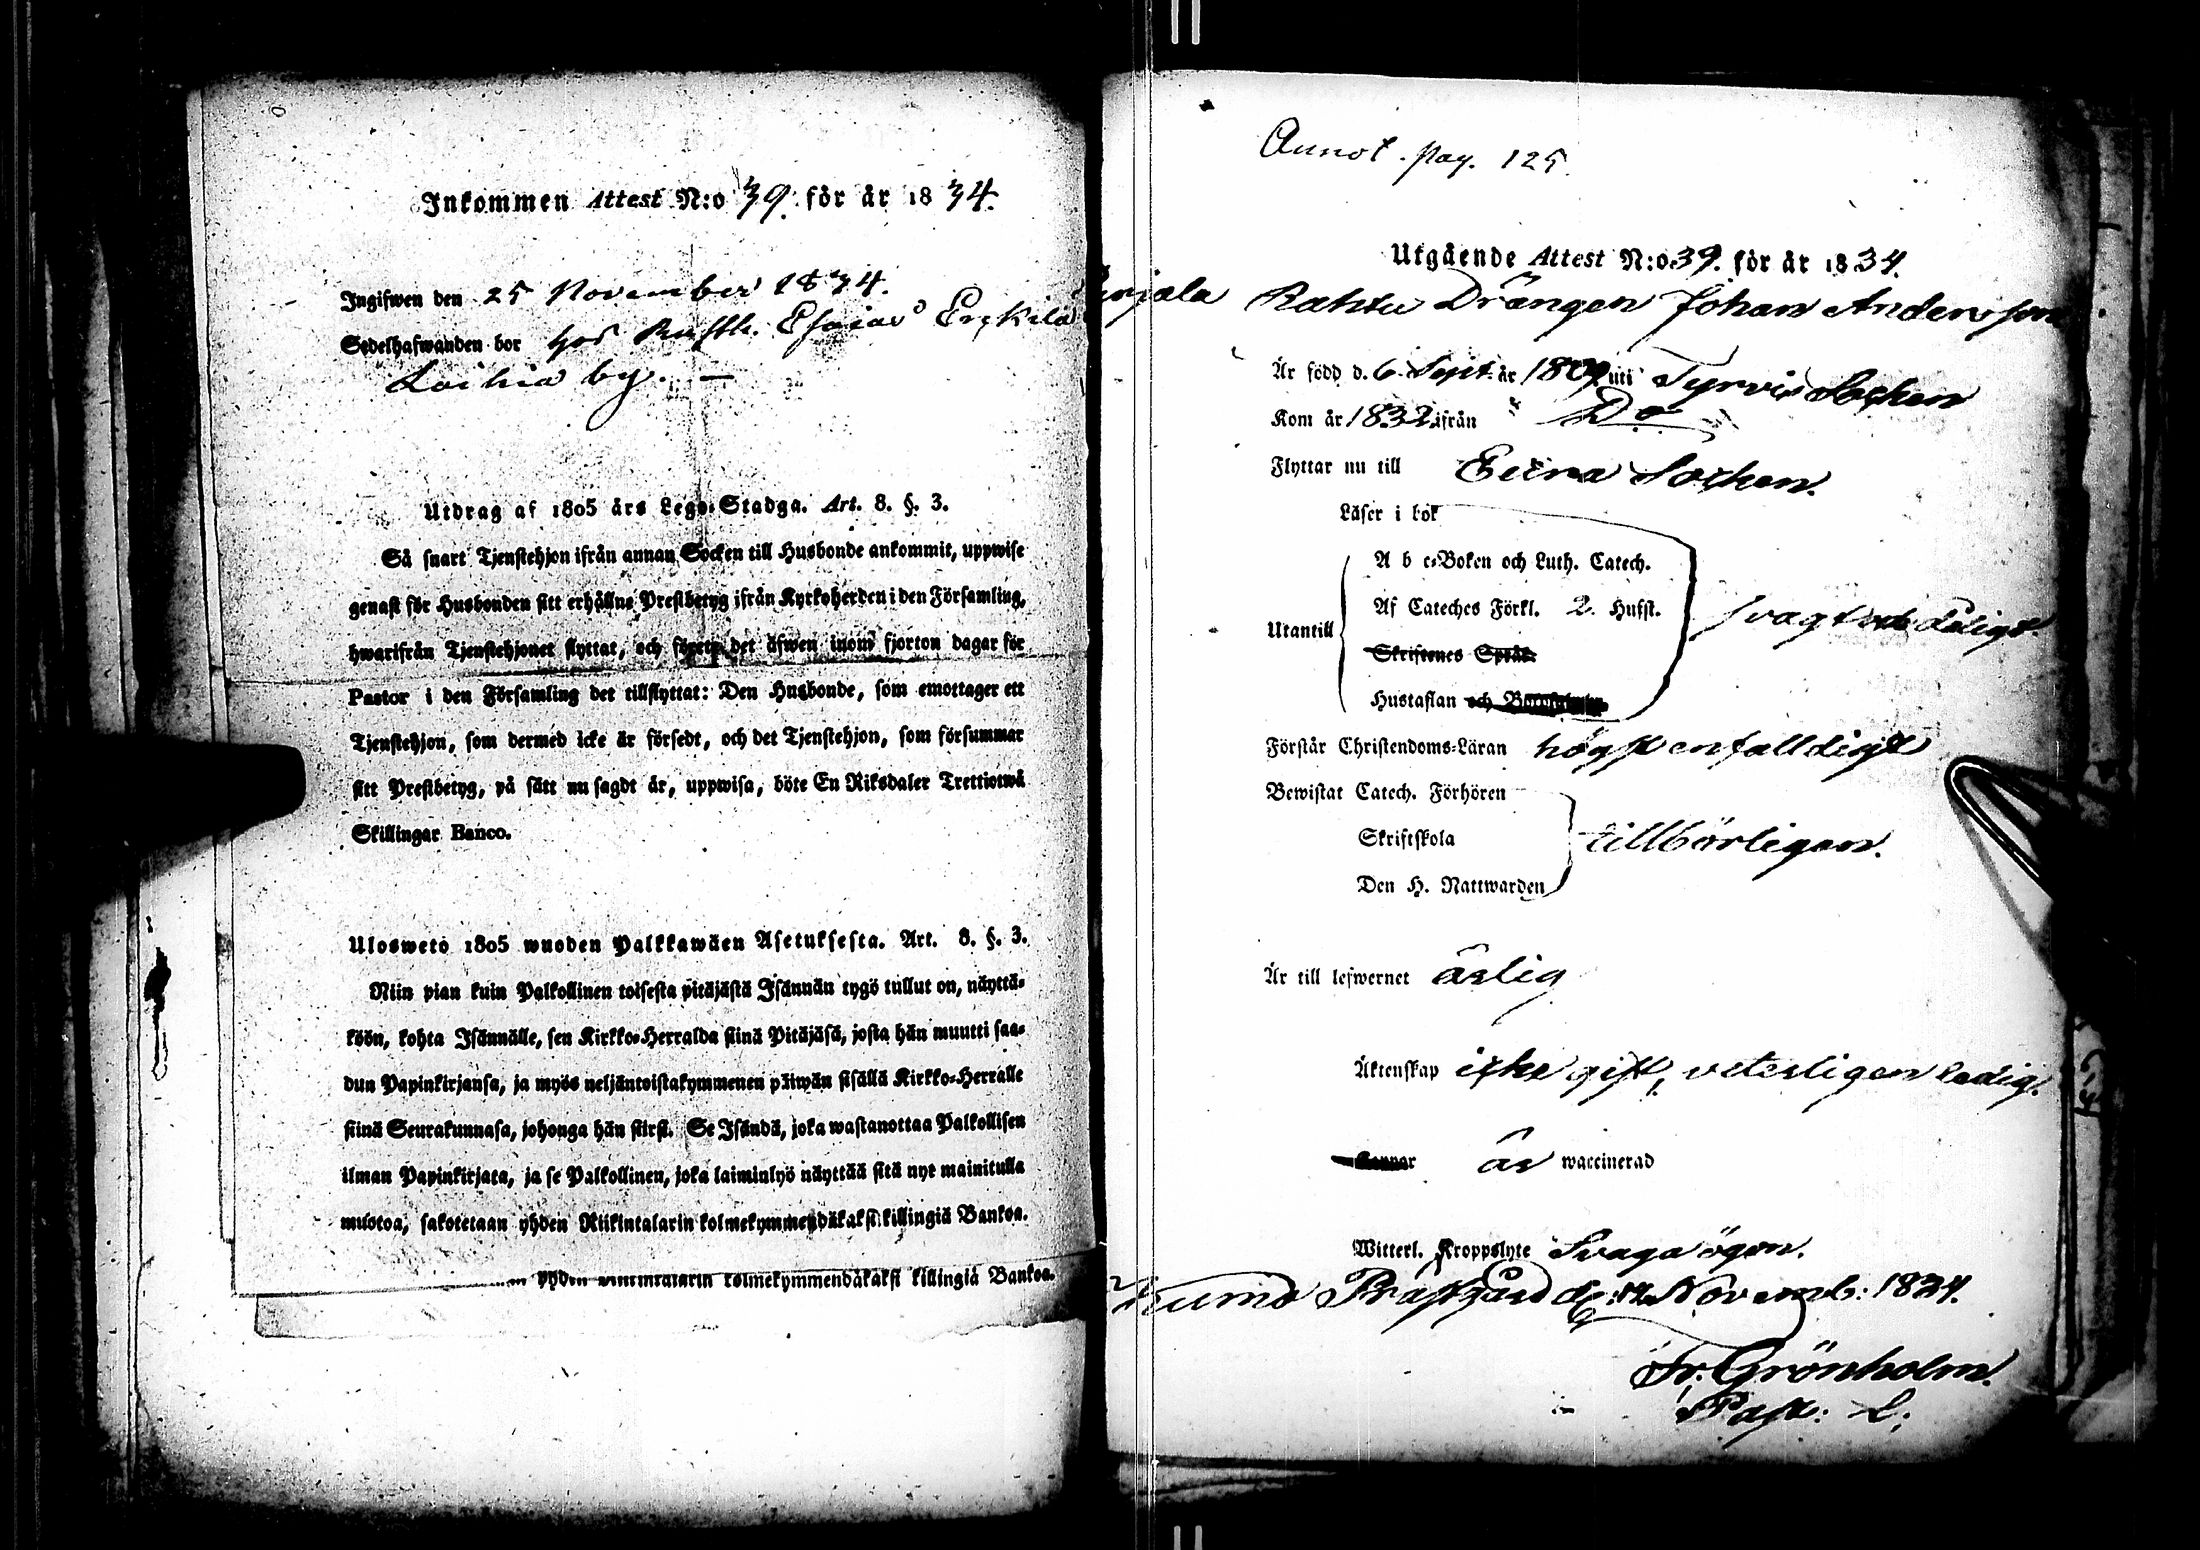 Inkommen Attest N:o 39. för år 1834.
Ingifwen den 25 November 1834.
Sedelhafwanden bor hos Rusth. Esaias Erkkilä
Loihia by. —
Utdrag af 1805 års Lego-Stadga. Art. 8. §. 3.
Så snart Tjenstehjon ifrån annan Socken till Husbonde ankommit, uppwise
genast för Husbonden sitt erhållne Prestbetyg ifrån Kyrkoherden i den Församling,
hwarifrån Tjenstehjonet flyttat, och förete det äfwen inom fjorton dagar för
Pastor i den Församling det tillflyttat: Den Husbonde, som emottager ett
Tjenstehjon, som dermed icke är försedt, och det Tjenstehjon, som försummar
sitt Prestbetyg, på sätt nu sagdt är, uppwisa, böte En Riksdaler Trettiotwå
Skillingar Banco.
Uloswetö 1805 wuoden Palkkawäen Asetuksesta. Art. 8. §. 3.
Niin pian kuin Palkollinen toisesta pitäjästä Isännän tygö tullut on, näyttä-
köön, kohta Isännälle, sen Kirkko-Herralda siinä Pitäjäsä, josta hän muutti saa-
dun Papinkirjansa, ja myös neljäntoistakymmenen päiwän sisällä Kirkko-Herralle
siinä Seurakunnasa, johonga hän siirst. Se Isändä, joka wastanottaa Palkollisen
ilman Papinkirjata, ja se Palkollinen, joka laiminlyö näyttää sitä nyt mainitulla
muotoa, sakotetaan yhden Riikintalarin kolmekymmendäkaksi killingiä Bankoa.
yhden Riikintalarin kolmekymmendäkaksi killingiä Bankoa.
Annot. pag. 125
Utgående Attest N:o 39. för år 1834.
Rahtu Drängen Johan Andersson
Är född d. 6 Sept. år 1809 uti Tyrvis Socken
Kom år 1832 ifrån Do
Flyttar nu till Eura Socken.
Läser i bok
Utantill
A b c-Boken och Luth. Catech.
Af Cateches Förkl. 2. Hufst.
Skriftenes Språk
Hustaflan och
svagt och deligt.
Förstår Christendoms-Läran högst enfalldigt
Bewistat Catech. Förhören
Skriftskola
Den H. Nattwarden
tillbörligen.
Är till lefwernet ärlig
Äktenskap icke gift, veterligen ledig.
är waccinerad
Witterl. Kroppslyte Svaga ögon.
Kumo Prästgård d. 17 Novemb: 1834.
Fr. Grönholm.
Past: L: